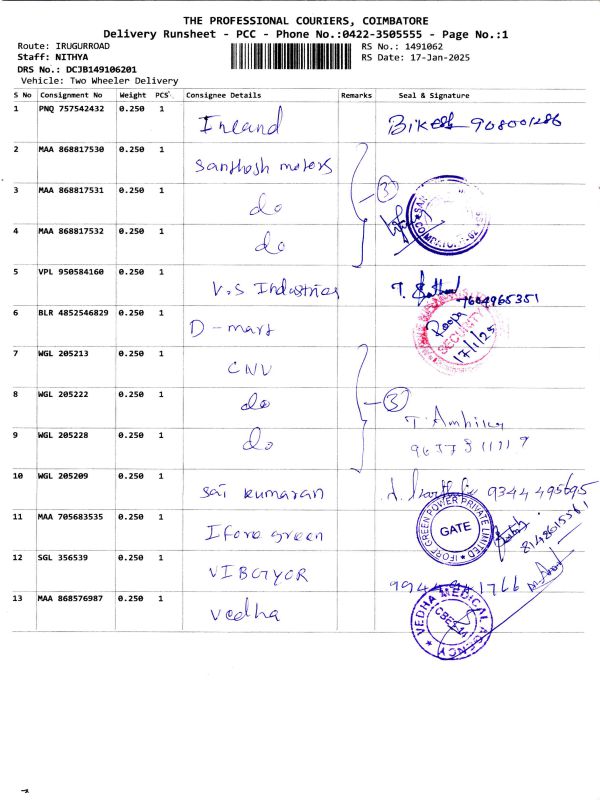 THE PROFESSIONAL COURIERS, COIMBATORE
Delivery Runsheet - PCC - Phone No.:0422-3505555 - Page No.:1
Route: IRUGURROAD RS No.: 1491062
Staff: NITHYA RS Date: 17-Jan-2025
DRS No.: DCJB149106201
Vehicle: Two Wheeler Delivery
S No Consignment No Weight PCS Consignee Details Remarks Seal & Signature
1 PNQ 757542432 0.250 1 Inland
2 MAA 868817530 0.250 1 Santhosh motors
3 MAA 868817531 0.250 1 do 3
4 MAA 868817532 0.250 1 do
5 VPL 950584160 0.250 1 V.S Industries T. 7604965351
6 BLR 4852546829 0.250 1 D-mart Roopa SECURITY 17/1/25
7 WGL 205213 0.250 1 CNV
8 WGL 205222 0.250 1 do 3
9 WGL 205228 0.250 1 do T. Ambika
10 WGL 205209 0.250 1 Sai kumaran 9344495695
11 MAA 705683535 0.250 1 Ifore green IFORF GREEN POWER PRIVATE LIMITED GATE
12 SGL 356539 0.250 1 VIBGYOR
13 MAA 868576987 0.250 1 Vedha VEDHA MEDICAL AGENCY CBE-14